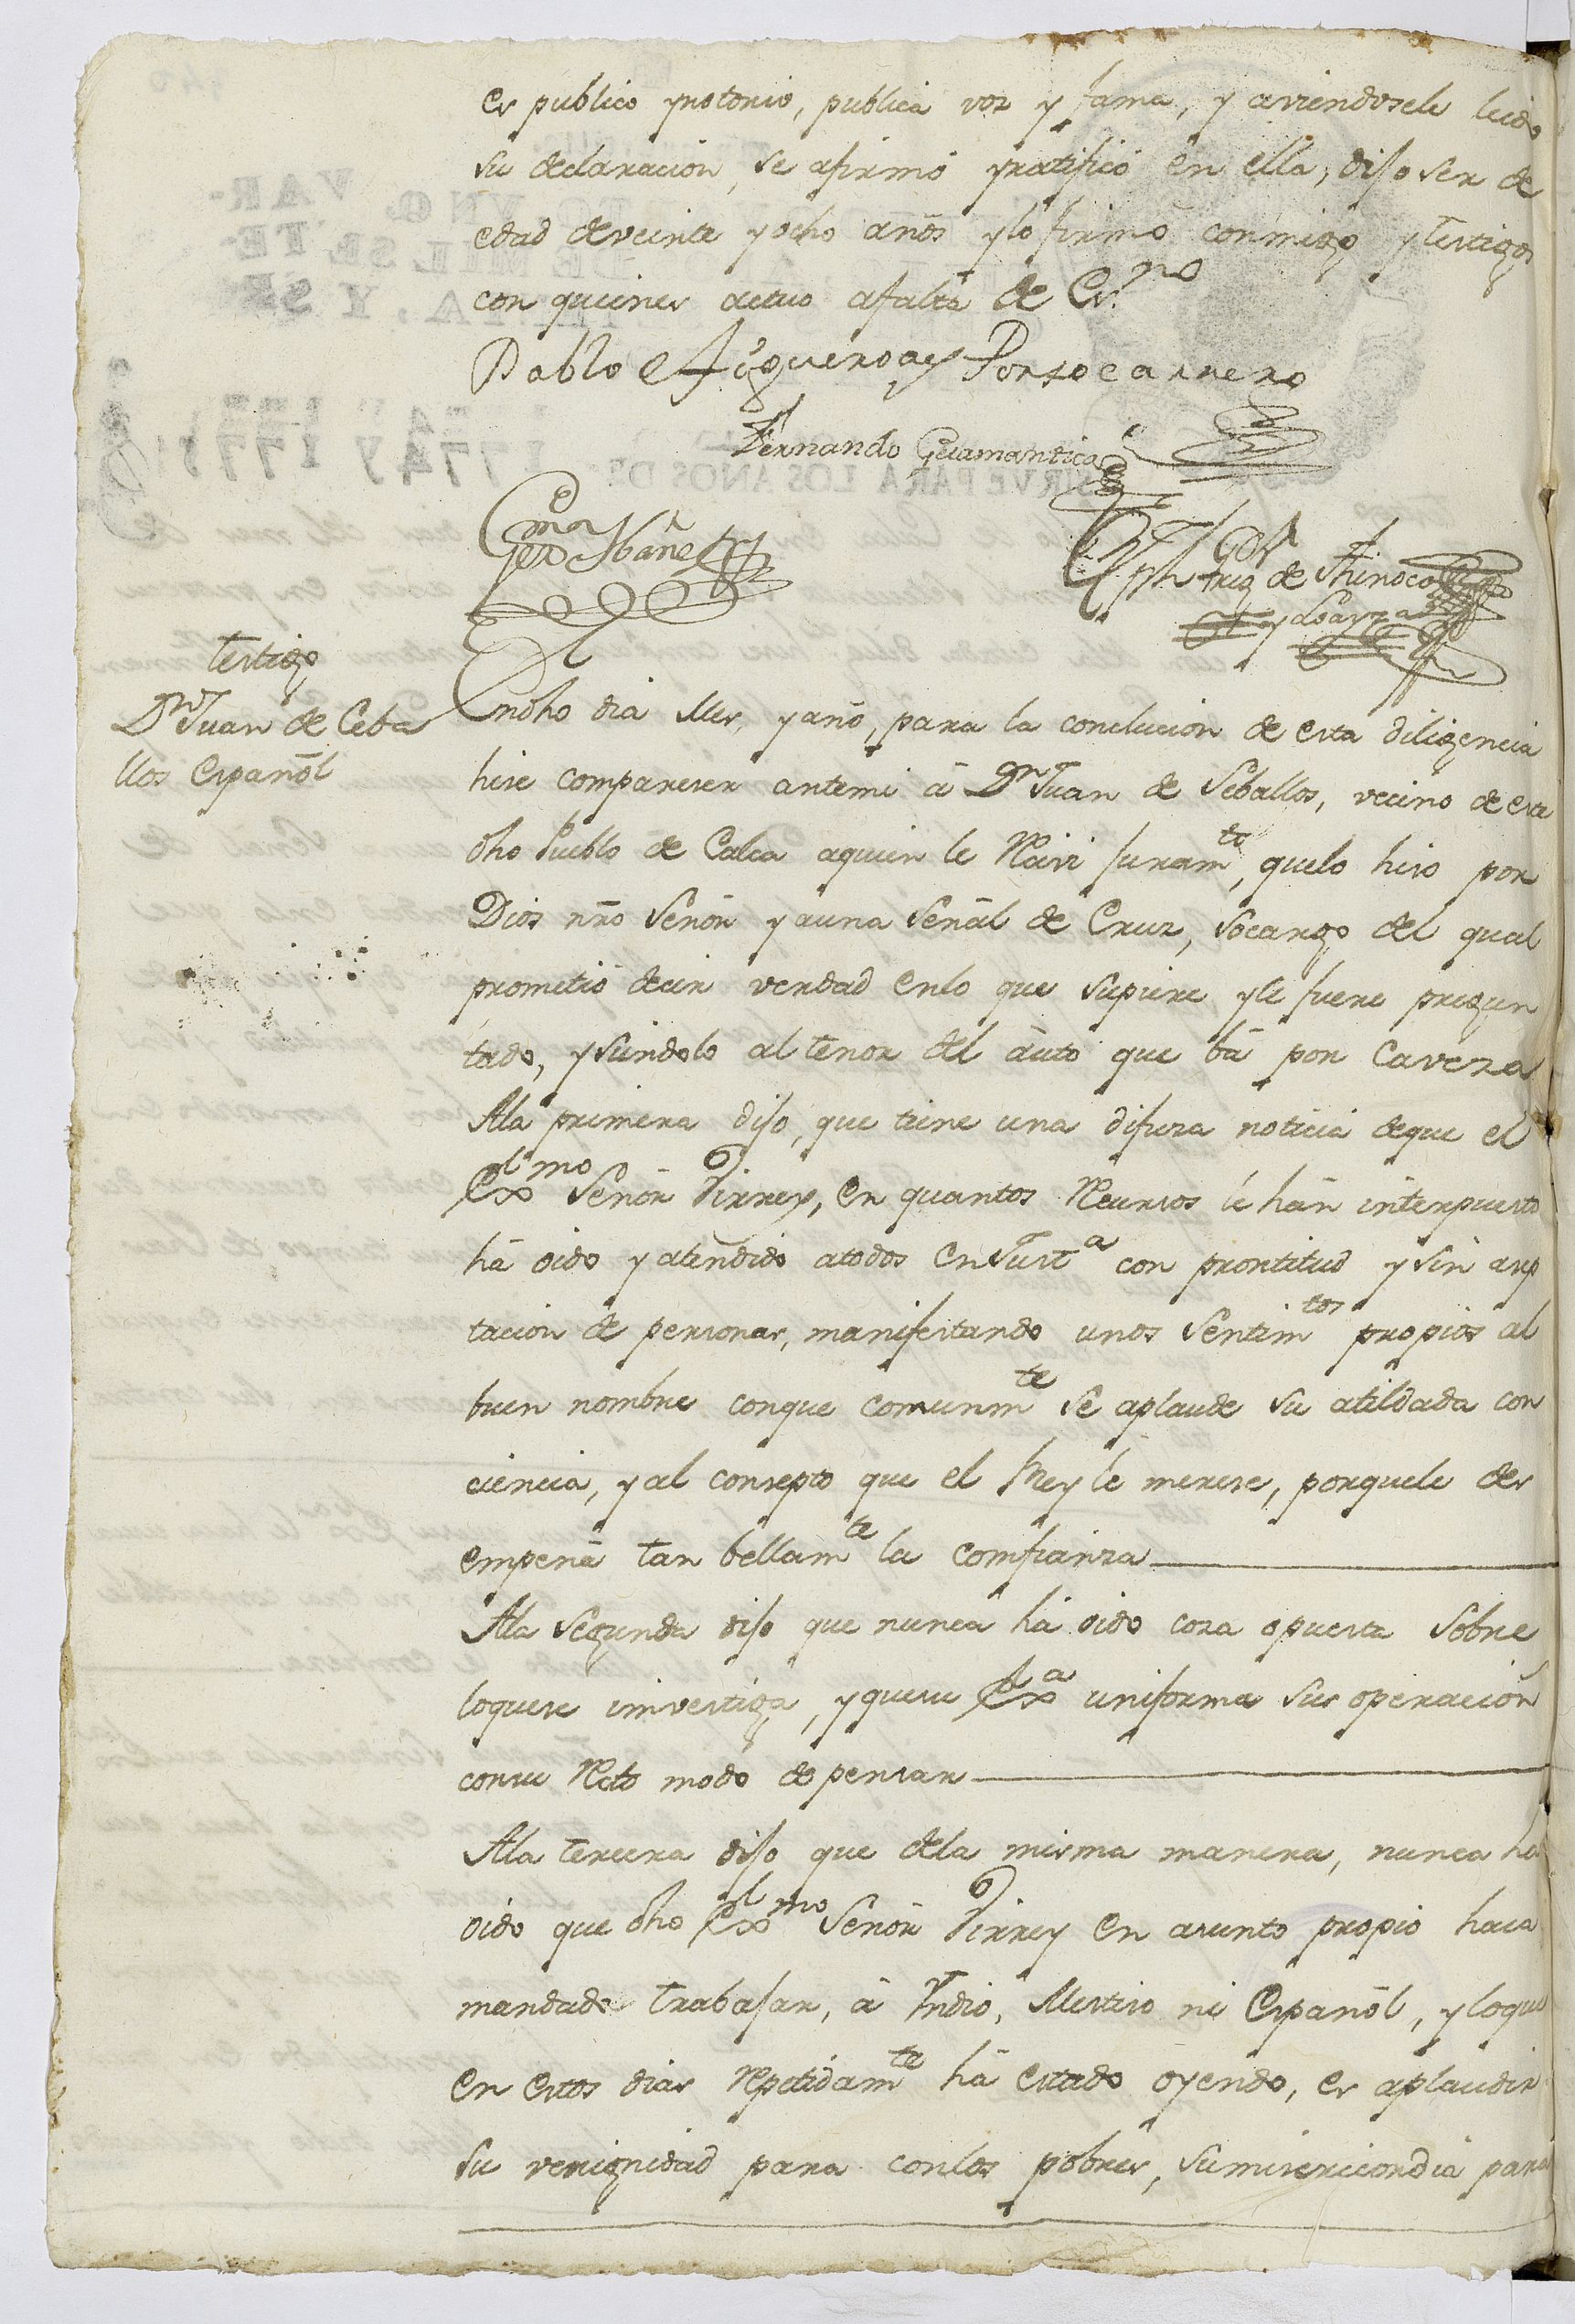 es publico ynotorio, publica voz y fama, y aviendosele leido
su declaracion, se afirmó yratificó en ella, dijo ser de
edad deveinte yocho años ylo firmó conmigo ytestigos
con quienes actuo afalta de Es.no
Pablo Figueroa y Portocarrero
Fernando Guamantica
Ibañes
de Thinoco
y Loayza
Testigo
Dn Juan de Ceba
llos Español
En dho dia Mes, yaño, para la conclucion de esta diligencia
hise compareser antemi á Dn Juan de Seballos, vecino de este
dho Pueblo de Calca aquien le Reciví Juramto, quelo hiso por
Dios nro Señor yauna señal de Cruz, socargo del qual
prometió decir verdad enlo que supiere yle fuere pregun
tado, ysiendolo altenor del auto que bá por Caveza
Ala primera dijo, que tiene una difusa noticia deque el
Exmo Señor Virrey, en quantos Recursos le hán interpuesto
há oido yatendido atodos en Justa con prontitud y sin asep
tacion de personas, manifestando unos sentimtos propios al
buen nombre conque comunmte se aplaude su atildada con
ciencia, yal consepto que el Rey le merese, porquele des
empeña tan bellamte la comfianza
Ala segunda dijo que nunca há oido cosa opuesta sobre
loquese imvestiga, yquesu Exa uniforma sus operacion
consu Recto modo depensar
Ala tercera dijo que dela misma manera, nunca há
oido que dho Exmo Señor Virrey en asunto propio haia
mandado trabajar, á Yndio, Mestiso ni Español, yloque
en estos dias repetidamte há estado oyendo, es aplaudir
su venignidad para conlos pobres, sumisericordia para